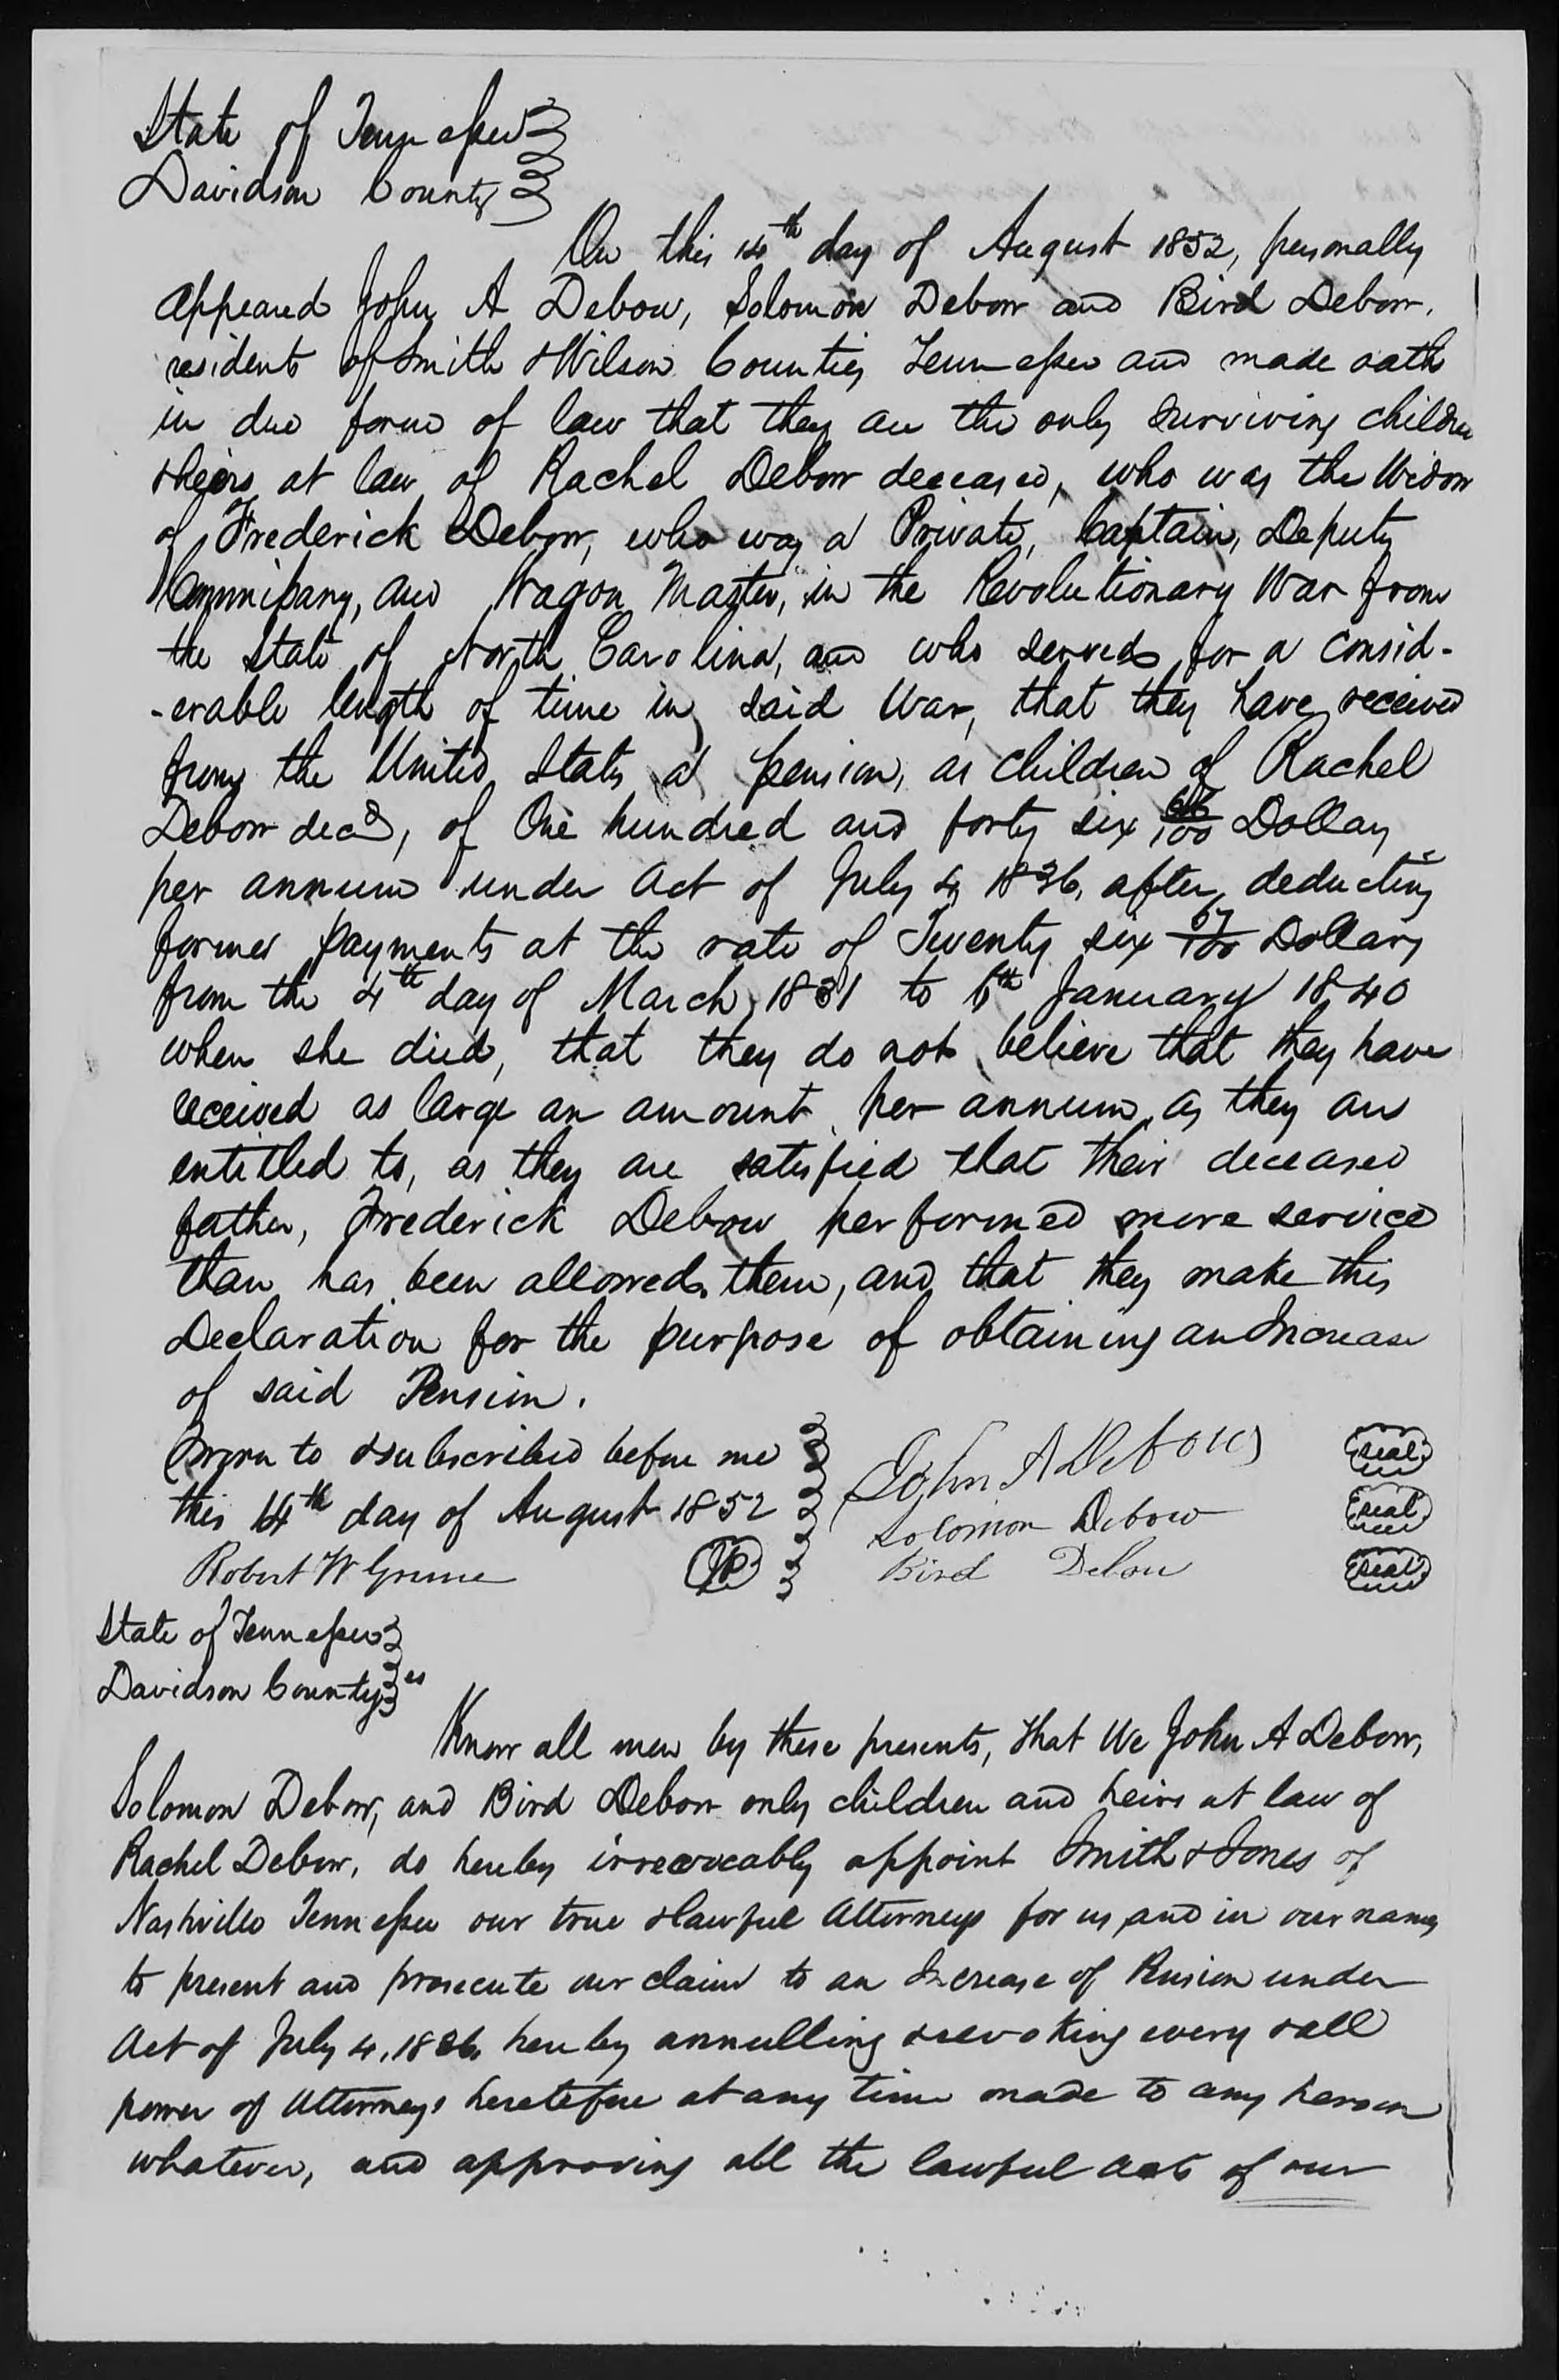 State of Tennessee
Davidson County
On this 14th day of August 1852, personally
appeared John A Debow, Solomon Debow and Bird Debow,
residents of Smith & Wilson Counties Tennessee and made oath
in due form of law that they are the only surviving children
& heirs at law of Rachel Debow deceased, who was the Widow
of Frederick Debow, who was a Private, Captain, Deputy
Commissary, and Wagon Master, in the Revolutionary War from
the State of North Carolina, and who served for a consid-
-erable length of time in said War, that they have received
from the United States a pension, as children of Rachel
Debow decd, of One hundred and forty six 66/100 Dollars
per annum under Act of July 4 1836, after deducting
former payments at the rate of Twenty six 67/100 Dollars
from the 4th day of March, 1831 to 6th January 1840
when she died, that they do not believe that they have
received as large an amount per annum as they are
entitled to, as they are satisfied that their deceased
father, Frederick Debow performed more service
than has been allowed them, and that they make this
Declaration for the purpose of obtaining an Increase
of said Pension.
Sworn to & subscribed before me
this 14th day of August 1852
Robert W Greene JP
John A Debow seal
Solomon Debow seal
Bird Debow seal
State of Tennessee
Davidson County ss
Know all men by these presents, that We John A Debow,
Solomon Debow, and Bird Debow only children and heirs at law of
Rachel Debow, do hereby irrevocably appoint Smith & Jones of
Nashville Tennessee our true & lawful Attorneys for us, and in our names
to present and prosecute our claim to an Increase of Pension under
Act of July 4, 1836, hereby annulling & revoking every & all
power of Attorneys heretofore at any time made to any person
whatever, and approving all the lawful acts of our